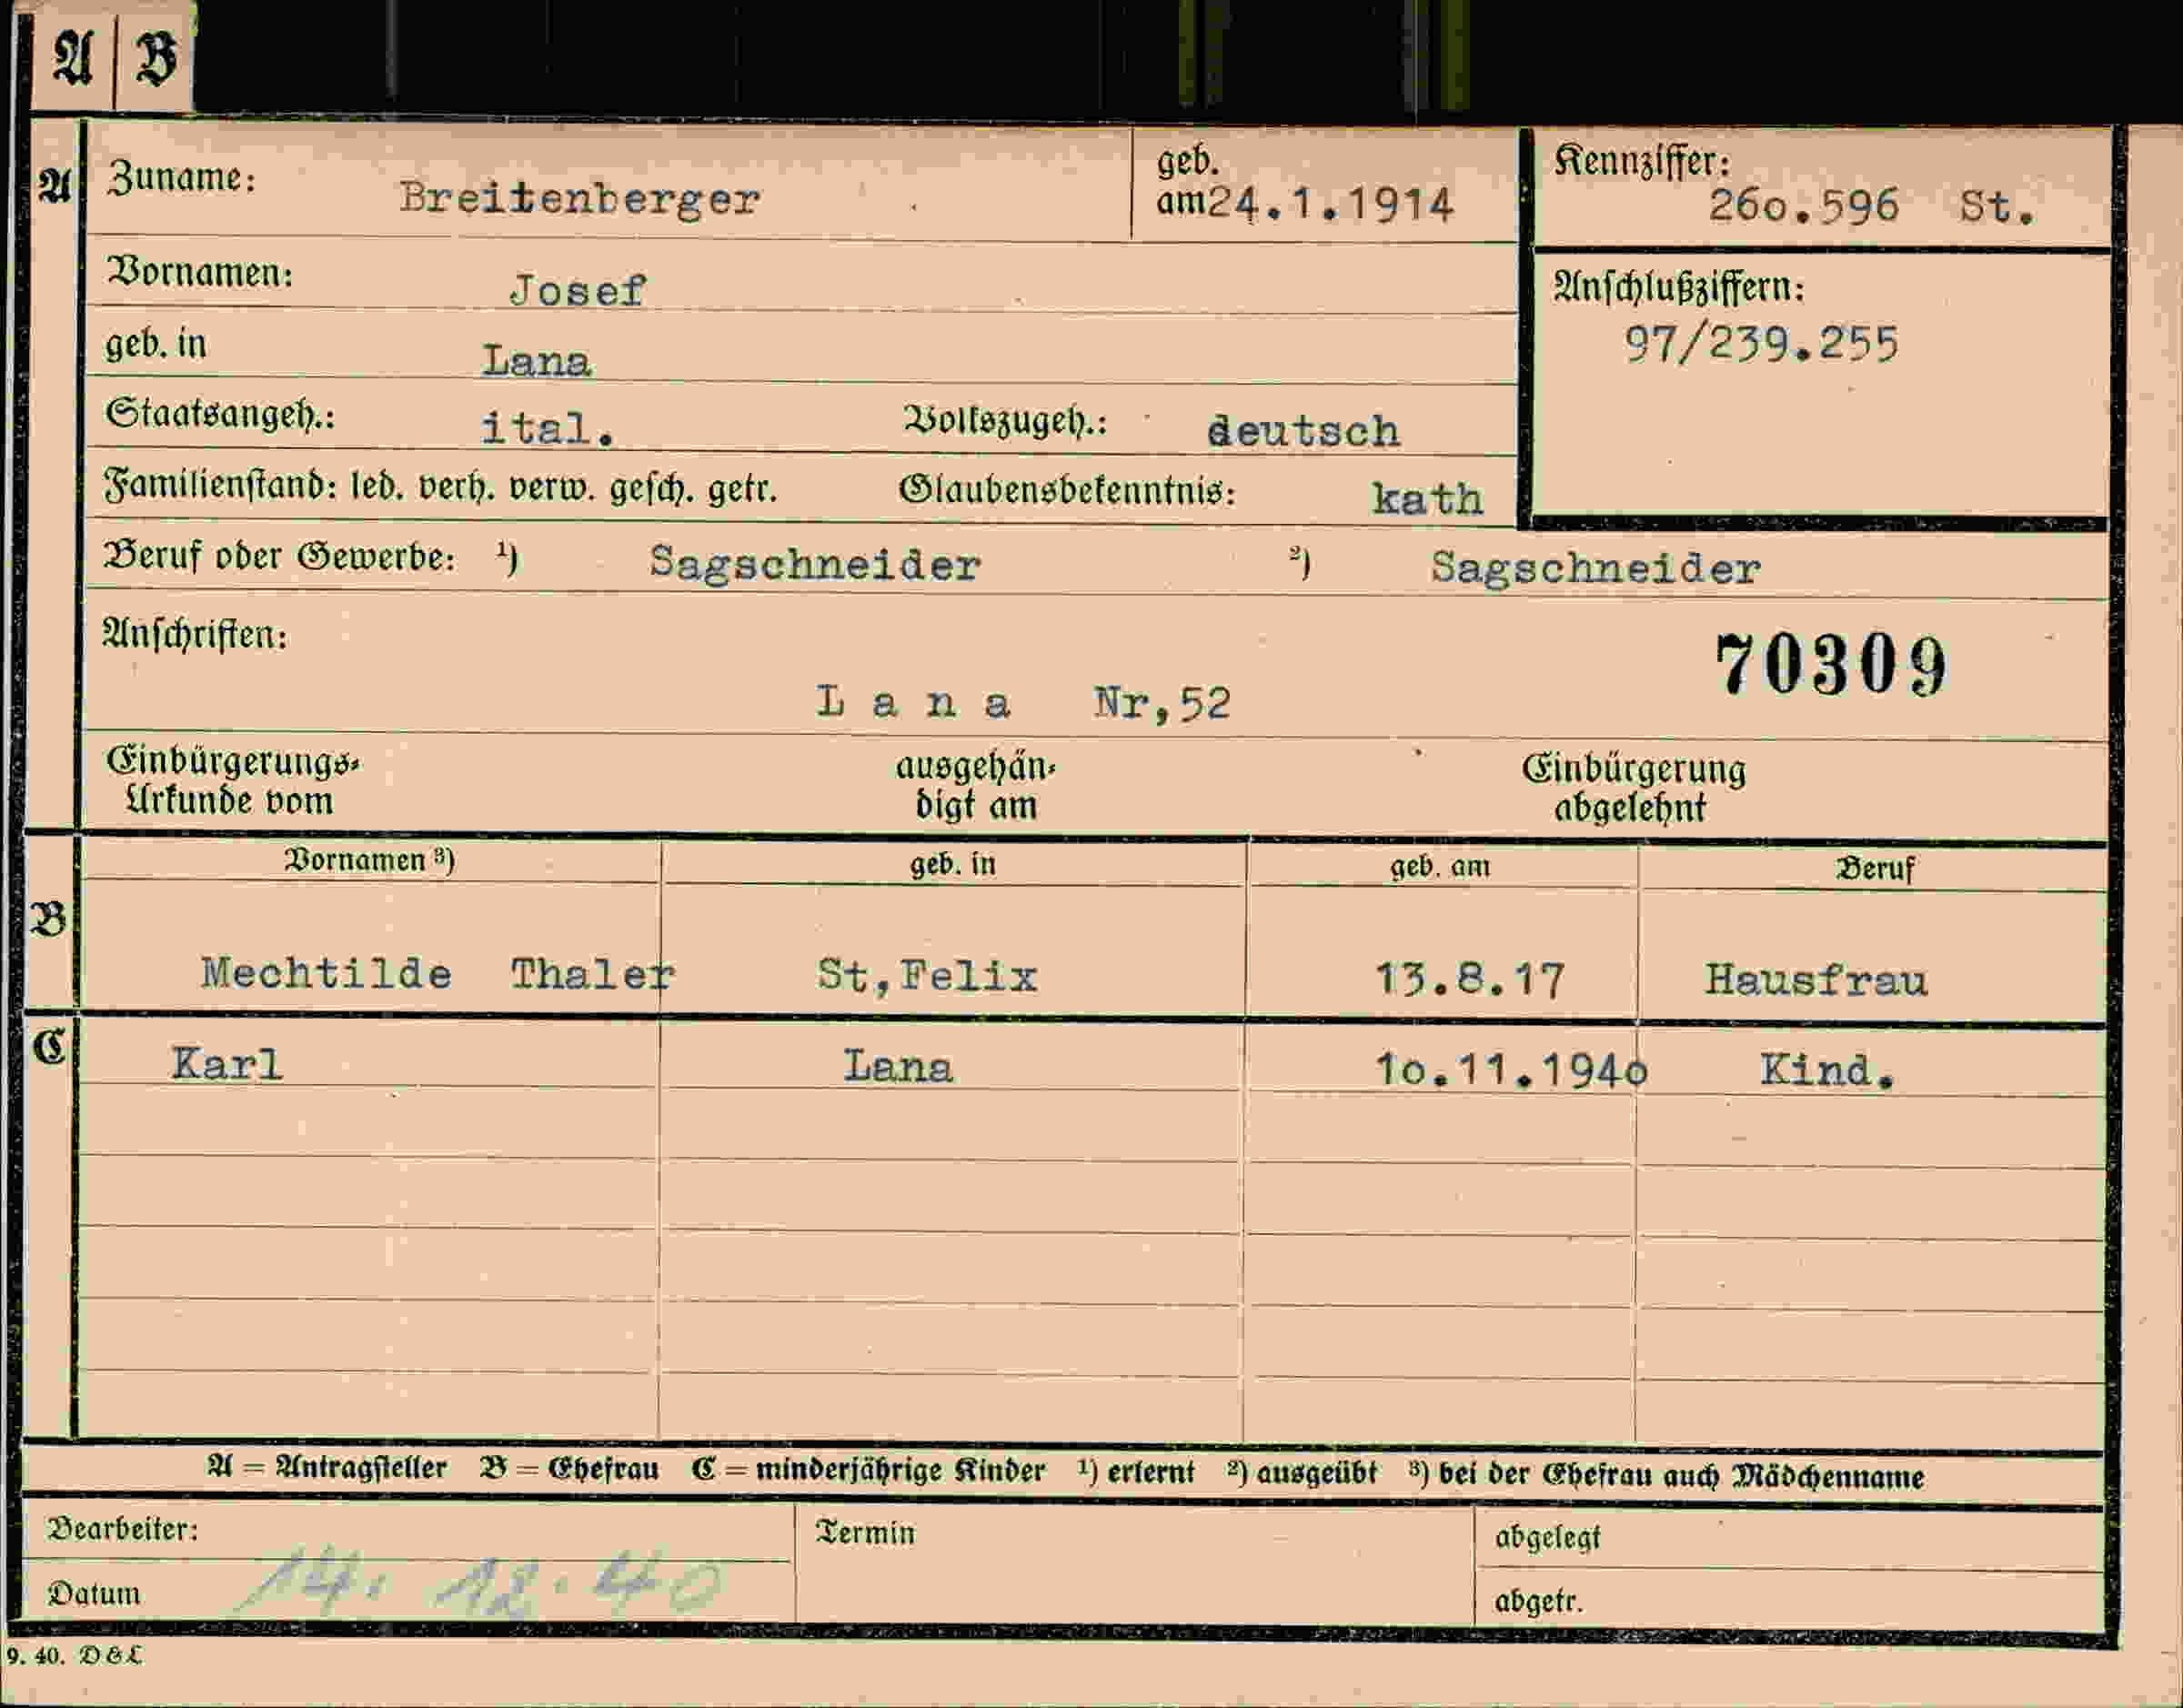 A B
A Zuname: Breitenberger geb. am 24.1.1914 Kennziffer: 26o.596 St.
Vornamen: Josef Anschlußziffern:
geb. in Lana 97/239.255
Staatsangeh.: ital. Volkszugeh.: deutsch
Familienstand: led. verh. verw. gesch. getr. Glaubensbekenntnis: kath
Beruf oder Gewerbe: ¹) Sagschneider ²) Sagschneider
Anschriften: 70309
L a n a Nr,52
Einbürgerungs- ausgehän- Einbürgerung
Urkunde vom digt am abgelehnt
Vornamen ³) geb. in geb. am Beruf
B Mechtilde Thaler St,Felix 13.8.17 Hausfrau
C Karl Lana 1o.11.194o Kind.
A = Antragsteller B = Ehefrau C = minderjährige Kinder ¹) erlernt ²) ausgeübt ³) bei der Ehefrau auch Mädchenname
Bearbeiter: Termin abgelegt
Datum 14. 12. 40 abgetr.
9. 40. D & L